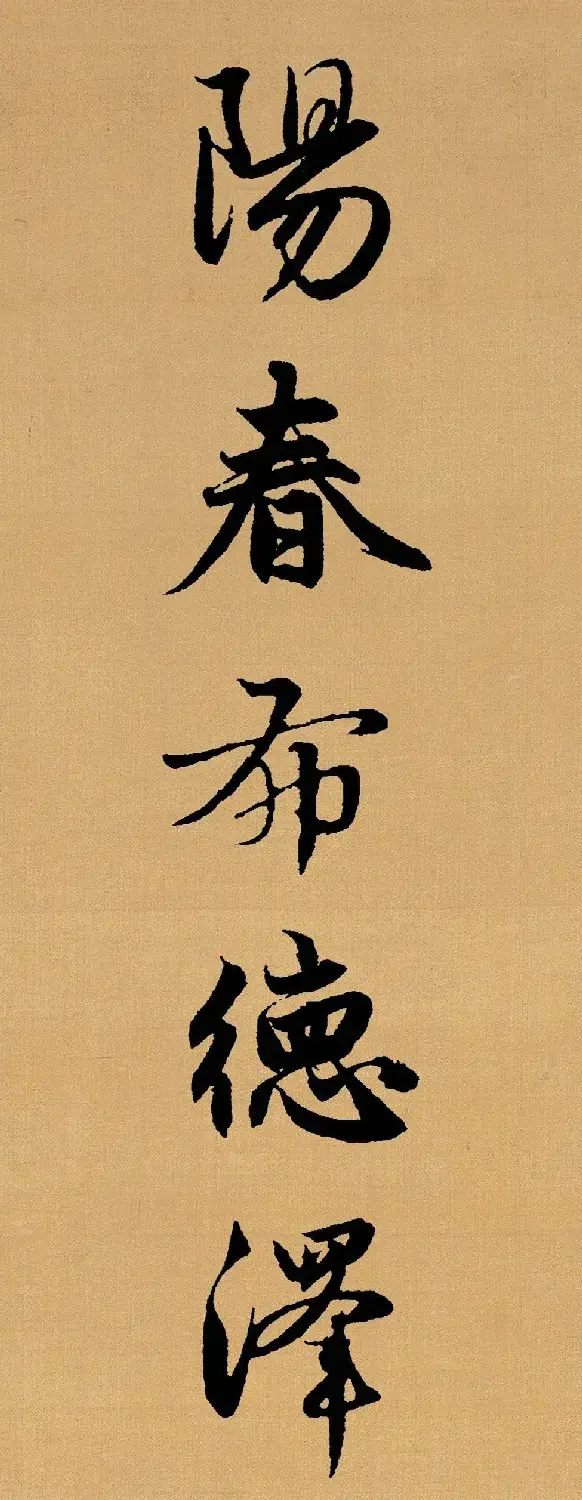 陽春布德澤